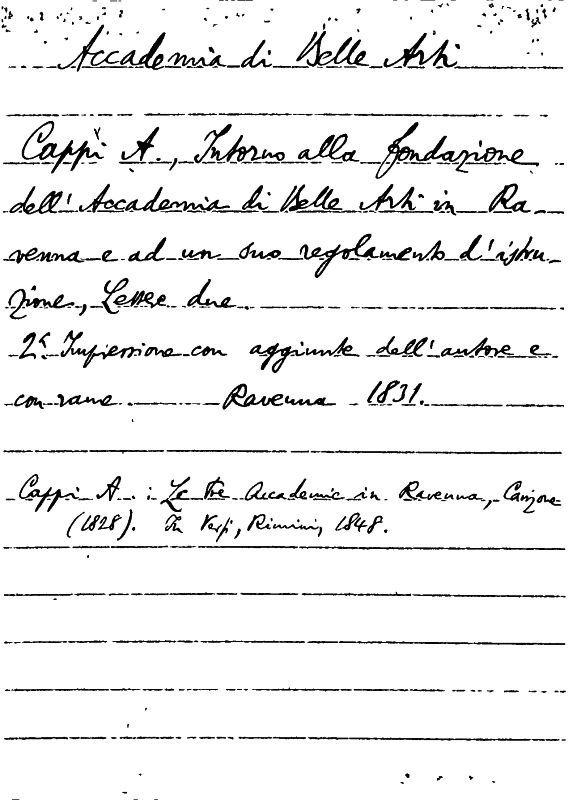 Accademia di Belle Arti
Cappi A., Intorno alla fondazione
dell'Accademia di Belle Arti in Ra-
venna e ad un suo regolamento d'istru-
zione, Lettere due.
2ª Impressione con aggiunte dell'autore e
con rame. Ravenna 1831.
Cappi A.: Le tre Accademie in Ravenna, Canzone
(1828). In Versi, Rimini, 1848.